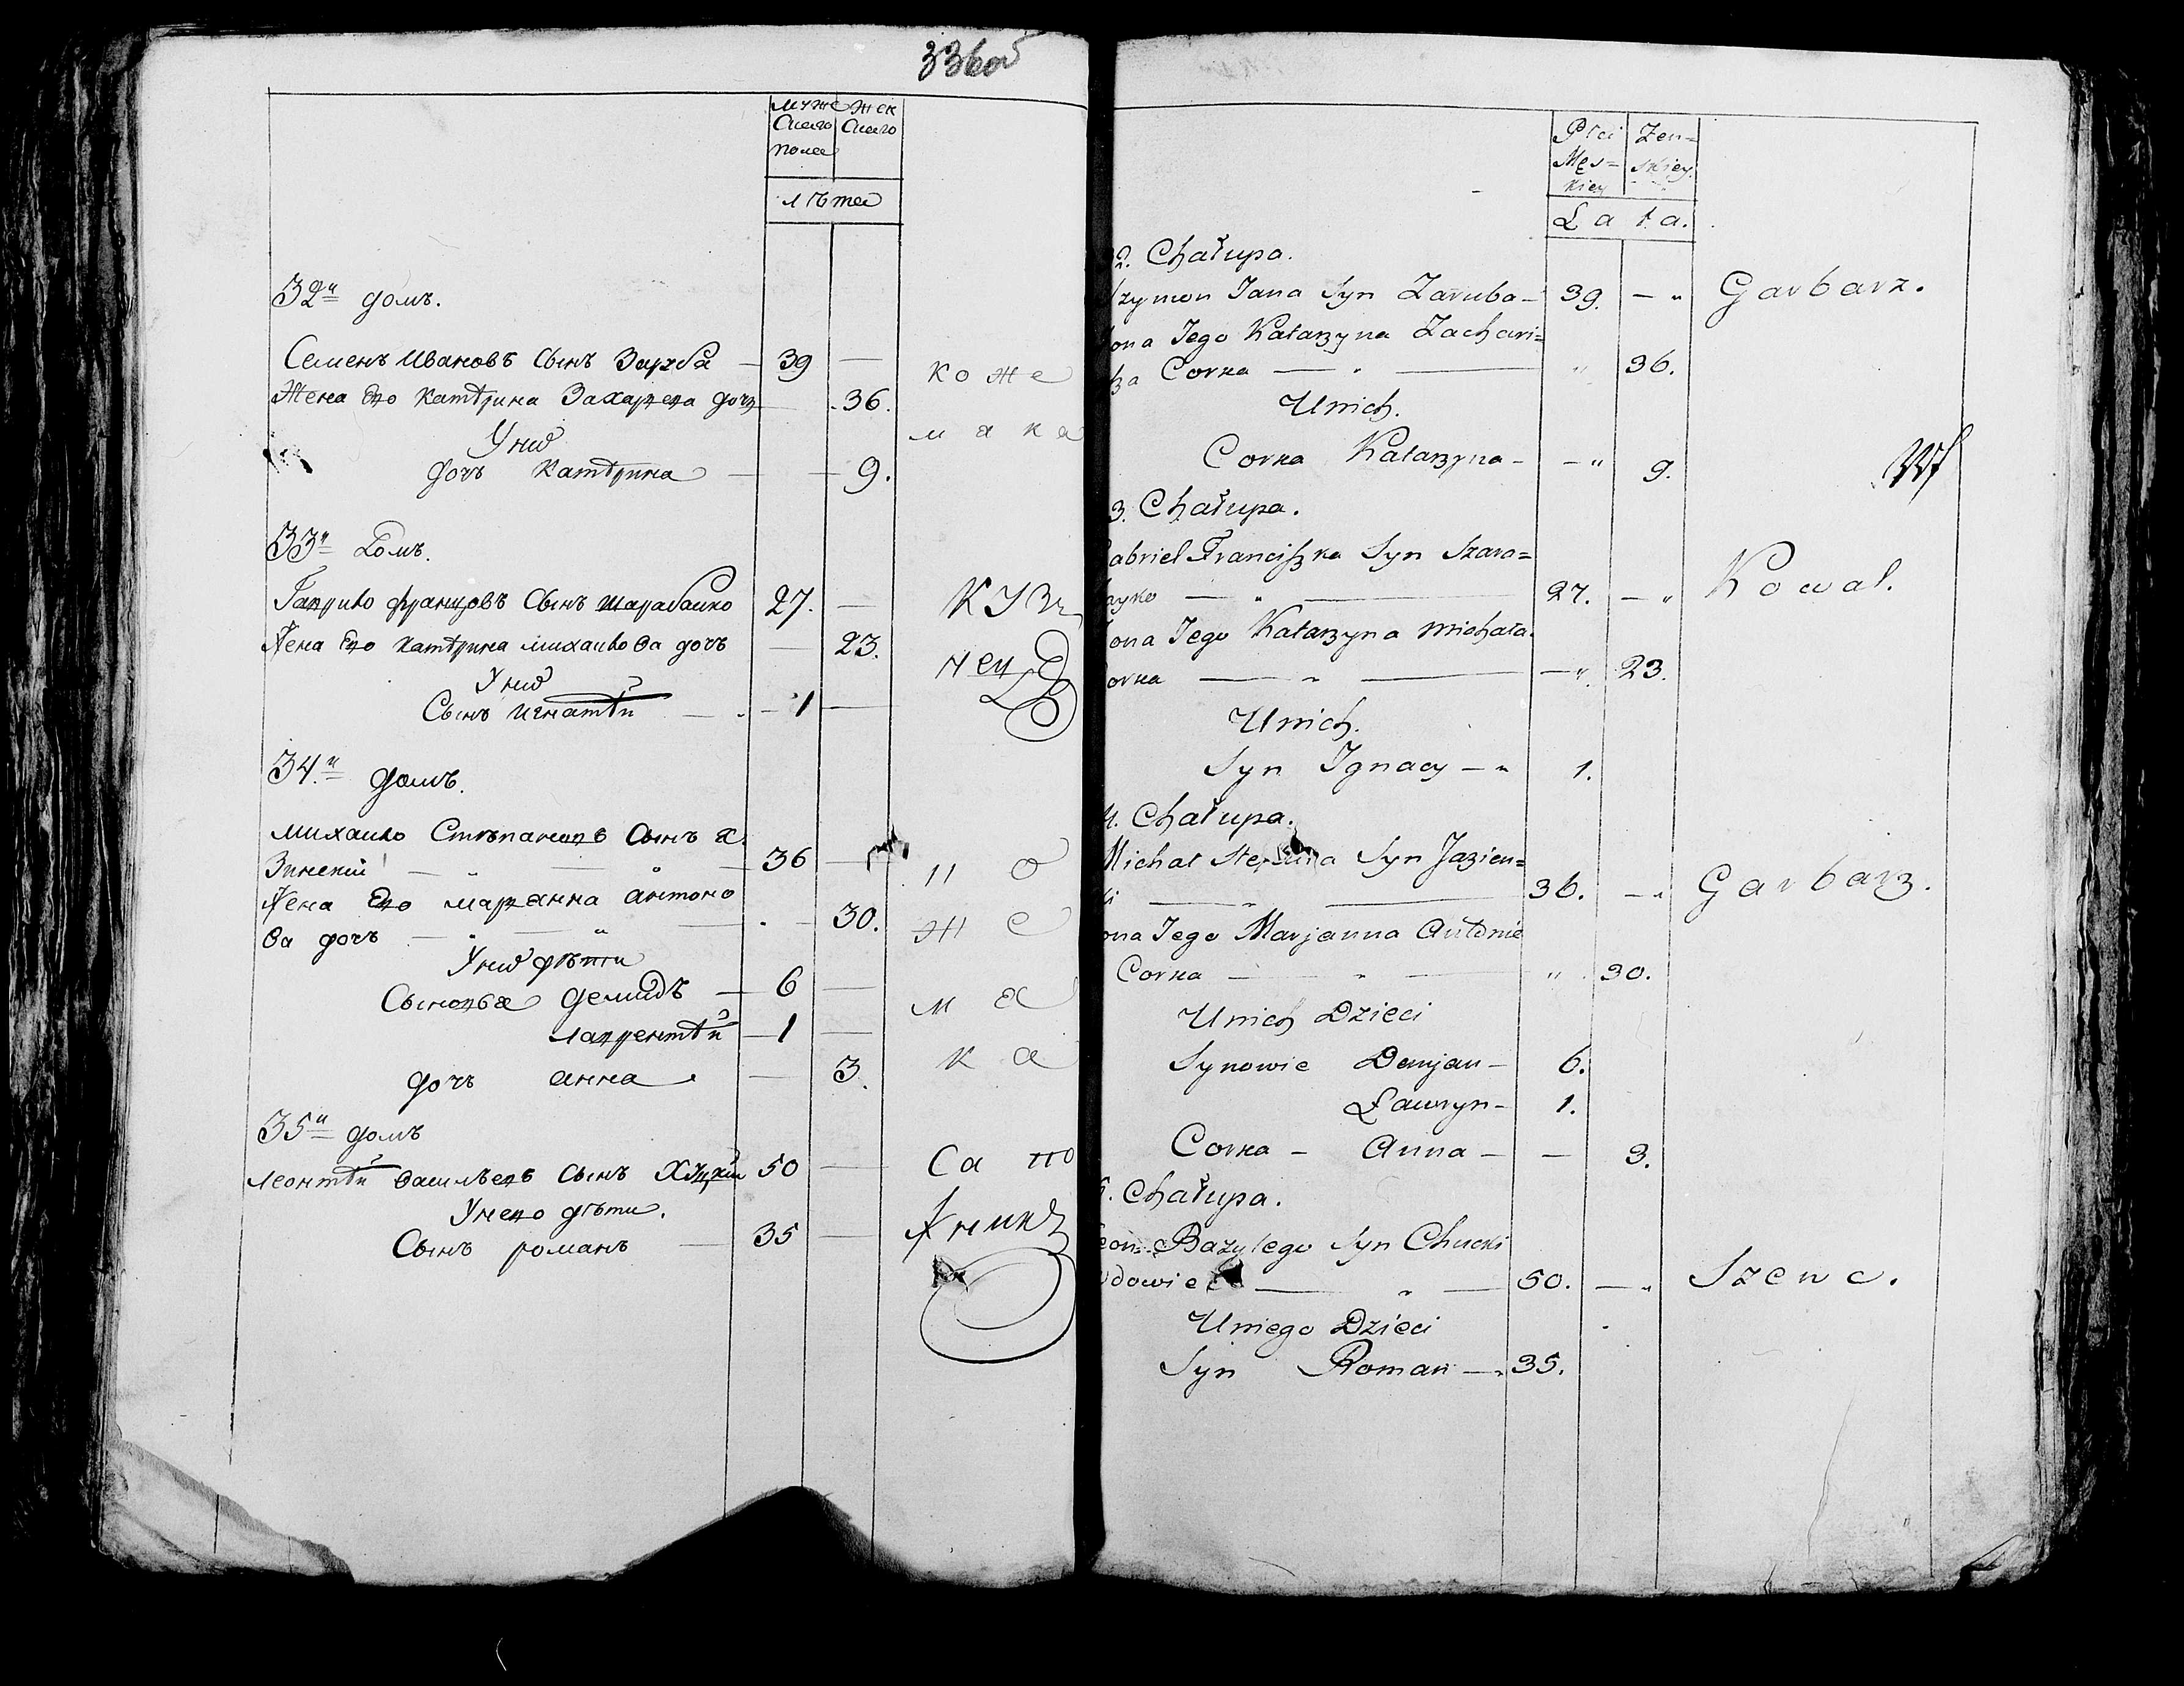 336об
Мужес Жен
скаго скаго
пола
лѣта
32й домъ.
Семенъ Ивановъ сынъ Заруба — 39 —
Жена Его Катѣрина Захарева дочь — 36.
коже
мяка
У них
дочь Катѣрина — — 9.
33й Домъ.
Гаврило Францовъ Сынъ Шарабайко 27. —
Жена Его Катѣрина Михайлова дочь — 23.
Кузнец
У них
Сынъ Игнатѣй — 1 —
34й домъ.
Михайло Стѣпановъ Сынъ Я
зинскій — 36 —
Жена Его Марьянна Антоно
ва дочь — 30.
Уних дѣти
Сыновья Демидъ — 6 —
Лаврентѣй — 1 —
дочь Анна — 3.
коже
мяка
35й домъ
Леонтѣй Васильевъ Сынъ Хуцкій 50 —
Унего дѣти.
Сынъ Романъ — 35 —
Сапожникъ
Płci Zen=
Męs= skiey.
kiey
Lata.
2. Chałupa.
Szymon Jana Syn Zaruba — 39. — „ Garbarz.
ona Jego Katarzyna Zachari=
sza Corka — „ — „ 36.
Unich.
Corka Katarzyna — — „ 9.
3. Chałupa.
Gabriel Franciszka Syn Szara=
bayko — „ — 27. — „ Kowal.
ona Jego Katarzyna Michała
Corka — „ — — „ 23.
Unich.
Syn Ignacy — „ 1.
4. Chałupa.
Michał Stefana Syn Jazien=
ski — „ — 36. — „ Garbarz.
ona Jego Marjanna Antonie
Corka — „ — „ 30.
Unich Dzieci
Synowie Demjan — 6.
Ławryn — 1.
Corka — Anna — — 3.
5. Chałupa.
Leon Bazylego Syn Chucki
Wdowiec — „ — 50. — „ Szewc.
Uniego Dzieci
Syn Roman — „ 35.